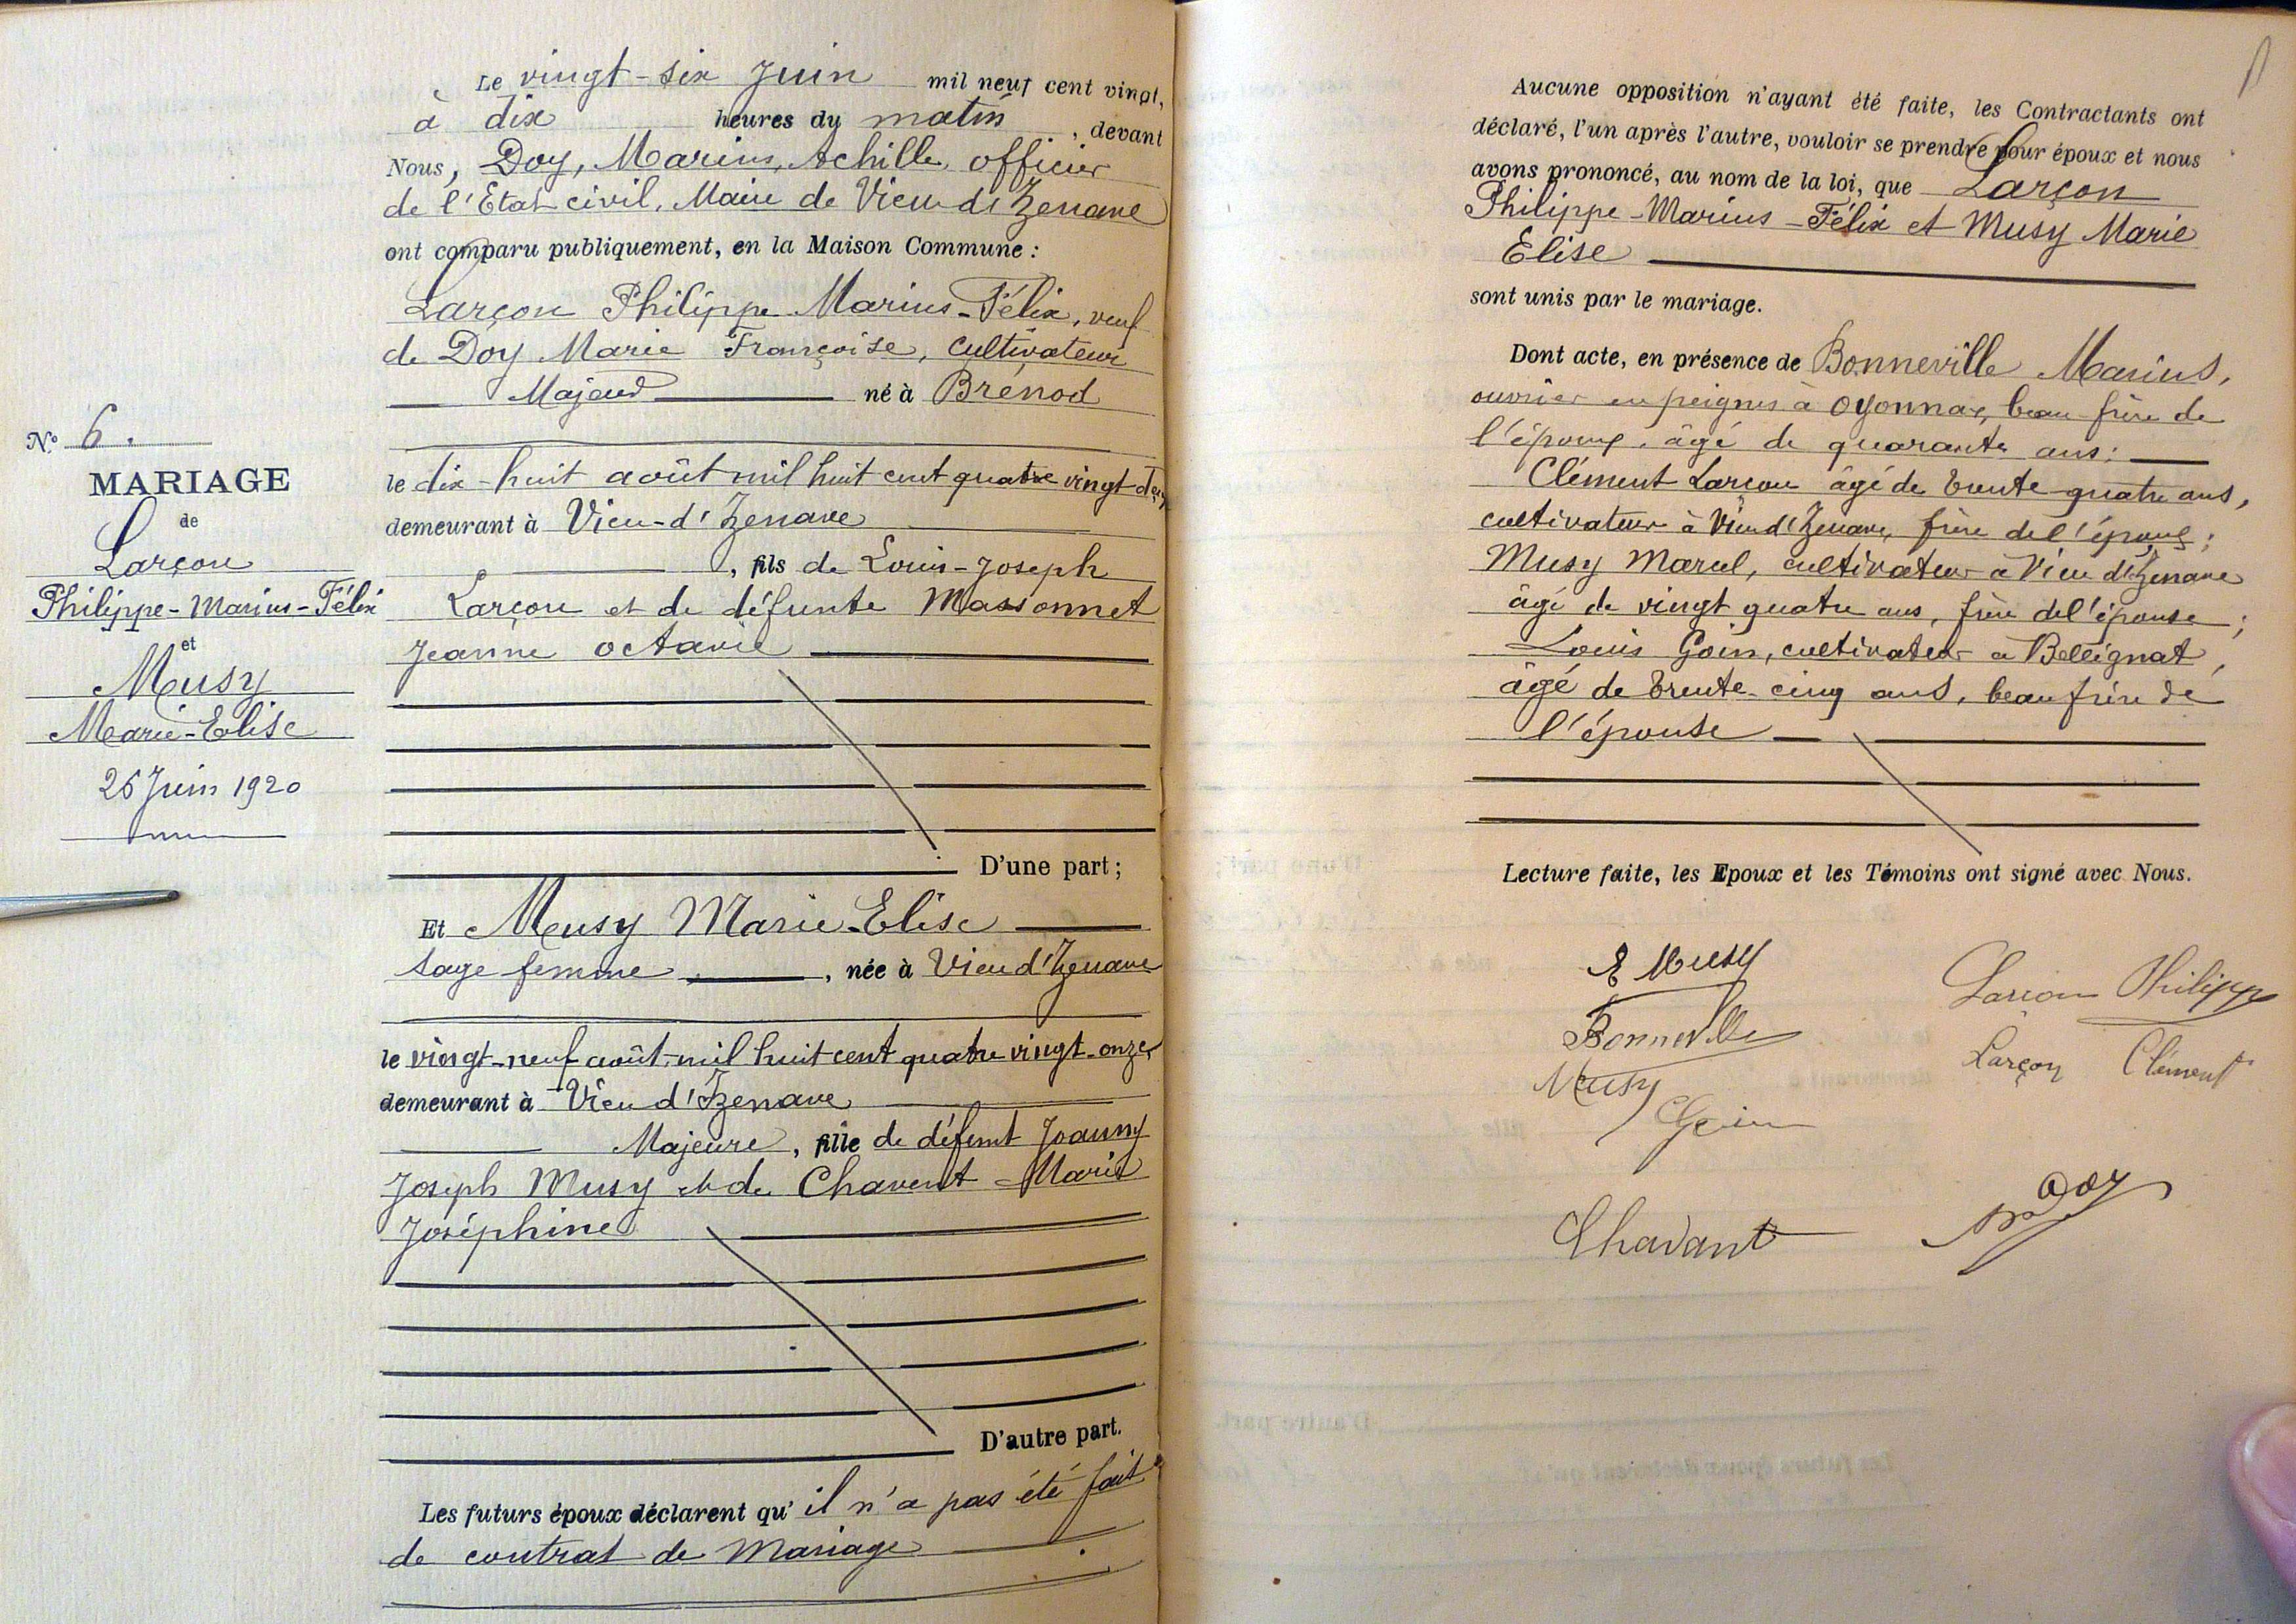 N° 6.
MARIAGE
de
Larçon
Philippe-Marius-Félix
et
Musy
Marie-Elise
26 Juin 1920
Le vingt-six Juin mil neuf cent vingt,
à dix heures du matin, devant
Nous, Doy, Marius, Achille officier
de l'Etat civil, Maire de Vieu d'Izenave
ont comparu publiquement, en la Maison Commune :
Larçon Philippe Marius-Félix, veuf
de Doy Marie Françoise, cultivateur
Majeur né à Brénod
le dix-huit août mil huit cent quatre vingt-deux
demeurant à Vieu-d'Izenave
, fils de Louis-Joseph
Larçon et de défunte Massonnet
Jeanne octavie
D'une part ;
Et Musy Marie-Elise
sage femme, née à Vieu d'Izenave
le vingt-neuf août mil huit cent quatre vingt-onze
demeurant à Vieu d'Izenave
Majeure, fille de défunt Joanny
Joseph Musy et de Chavent Marie
Joséphine
D'autre part.
Les futurs époux déclarent qu'il n'a pas été fait
de contrat de Mariage
Aucune opposition n'ayant été faite, les Contractants ont
déclaré, l'un après l'autre, vouloir se prendre pour époux et nous
avons prononcé, au nom de la loi, que Larçon
Philippe-Marius-Félix et Musy Marie
Elise
sont unis par le mariage.
Dont acte, en présence de Bonneville Marius,
ouvrier en peignes à Oyonnax, beau-frère de
l'époux, âgé de quarante ans;
Clément Larçon âgé de trente-quatre ans,
cultivateur à Vieu d'Izenave, frère de l'époux;
Musy Marcel, cultivateur à Vieu d'Izenave
âgé de vingt quatre ans, frère de l'épouse;
Louis Goin, cultivateur à Bellignat,
âgé de trente-cinq ans, beau frère de
l'épouse
Lecture faite, les Epoux et les Témoins ont signé avec Nous.
E Musy
Larçon Philippe
Bonneville
Larçon Clément
Musy
Goin
Chavant
Doy